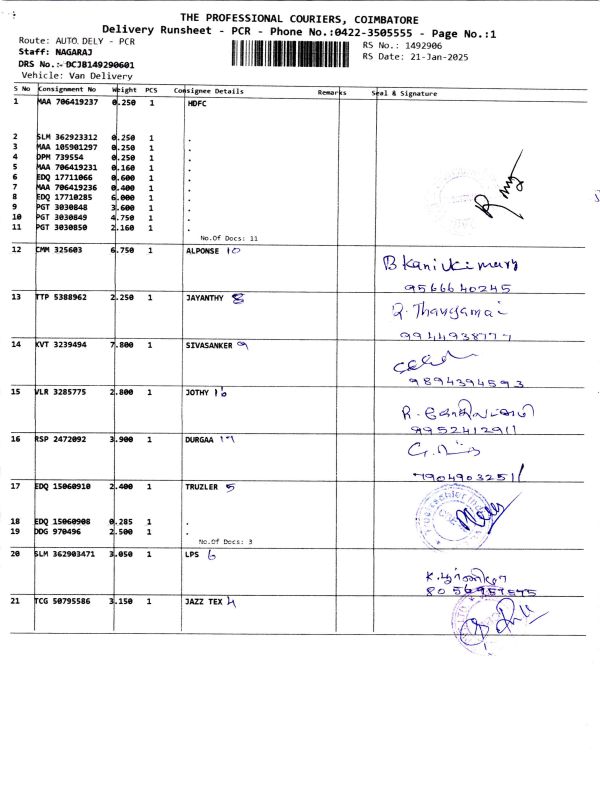 THE PROFESSIONAL COURIERS, COIMBATORE
Delivery Runsheet - PCR - Phone No.:0422-3505555 - Page No.:1
Route: AUTO DELY - PCR
RS No.: 1492906
Staff: NAGARAJ
RS Date: 21-Jan-2025
DRS No.:- DCJB149290601
Vehicle: Van Delivery
S No Consignment No Weight PCS Consignee Details Remarks Seal & Signature
1 MAA 706419237 0.250 1 HDFC
2 SLM 362923312 0.250 1 .
3 MAA 105901297 0.250 1 .
4 DPM 739554 0.250 1 .
5 MAA 706419231 0.160 1 .
6 EDQ 17711066 0.600 1 .
7 MAA 706419236 0.400 1 .
8 EDQ 17710285 6.000 1 .
9 PGT 3030848 3.600 1 .
10 PGT 3030849 4.750 1 .
11 PGT 3030850 2.160 1 .
No.Of Docs: 11
12 CMM 325603 6.750 1 ALPONSE 10
9566640245
13 TTP 5388962 2.250 1 JAYANTHY 8
R. Thangamai
9944938777
14 KVT 3239494 7.800 1 SIVASANKER 9
9894394593
15 VLR 3285775 2.800 1 JOTHY 16
9952412911
16 RSP 2472092 3.900 1 DURGAA 17
7904903251
17 EDQ 15060910 2.400 1 TRUZLER 5
18 EDQ 15060908 0.285 1 .
19 DDG 970496 2.500 1 .
No.Of Docs: 3
20 SLM 362903471 3.050 1 LPS 6
8056959575
21 TCG 50795586 3.150 1 JAZZ TEX 4